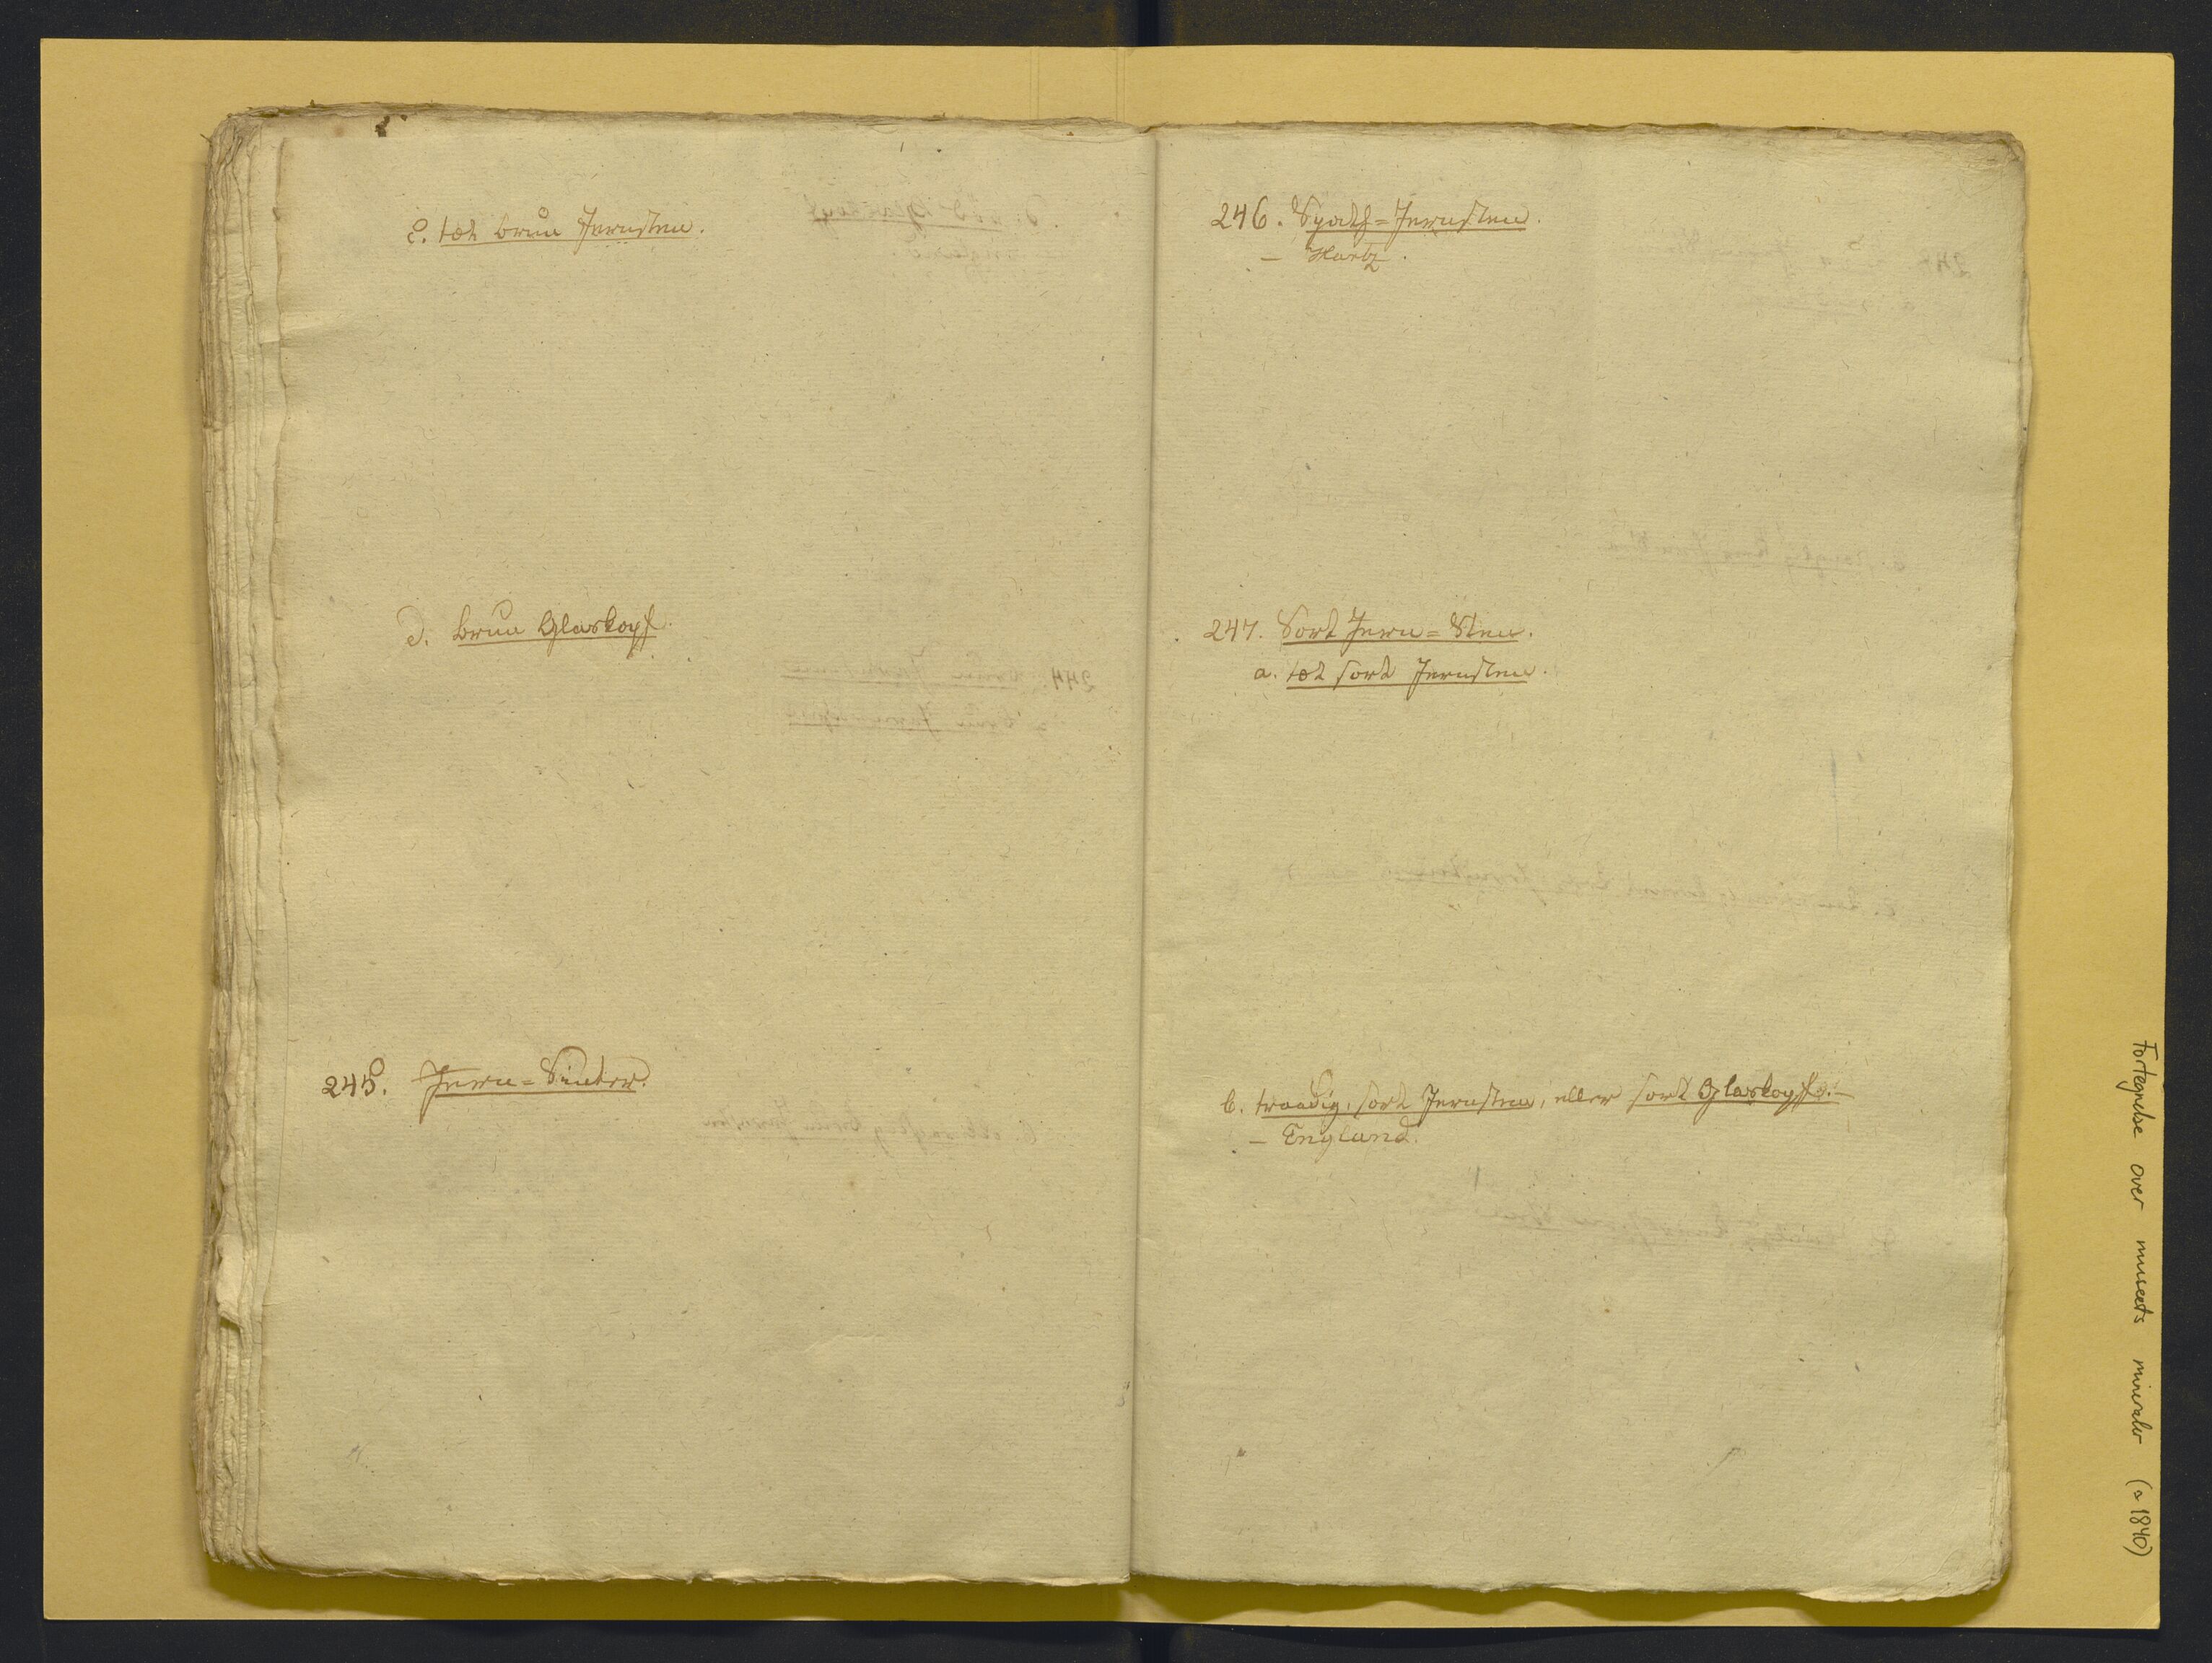 c. tæt bruun Jernsten.
d. bruun Glaskopf.
245. Jern=Sinter.
246. Spath=Jernsten.
– Hartz.
247. Sort Jern=Sten.
a. tæt sort Jernsten.
b. traadig, sort Jernsten, eller sort Glaskopf
– England.
Fortegnelse over museets mineraler (ca 1840)